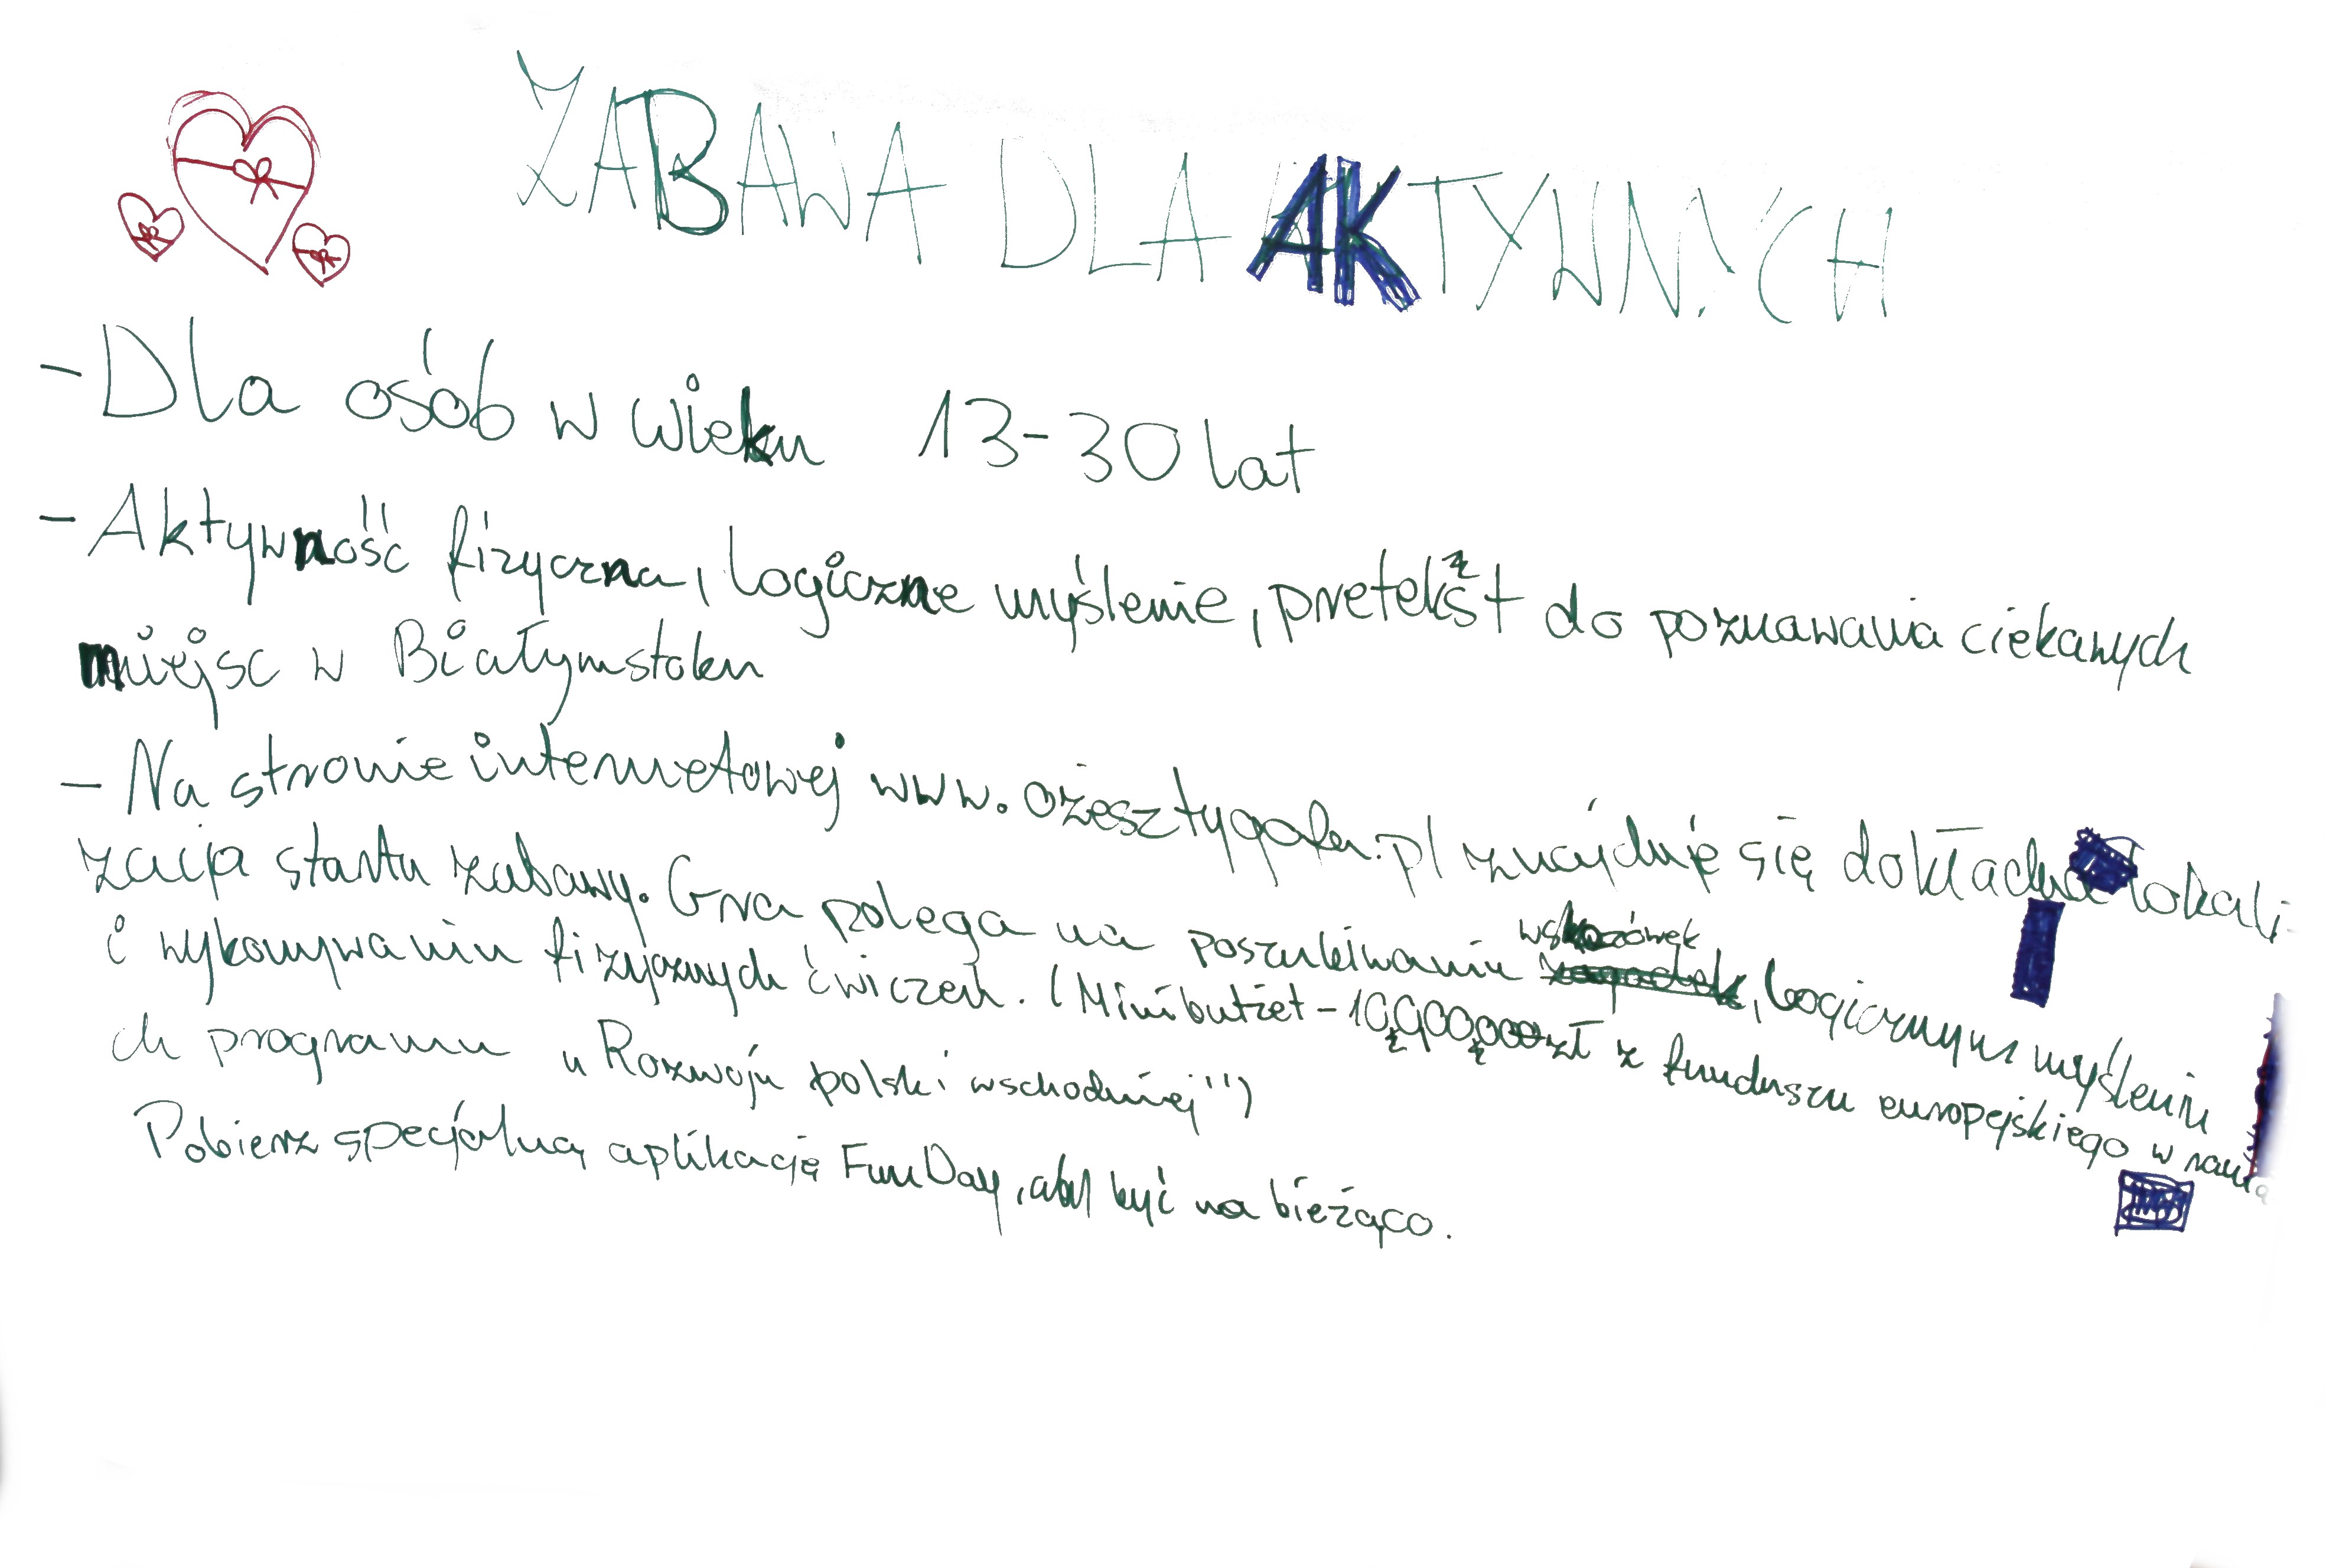 ZABAWA DLA AKTYWNYCH
- Dla osób w wieku 13-30 lat
- Aktywność fizyczna, logiczne myślenie, pretekst do poznawania ciekawych
miejsc w Białymstoku
- Na stronie internetowej www.ożesztygolfer.pl znajduję się dokładna lokali-
zacja startu zabawy. Gra polega na poszukiwaniu wskazówek, logicznym myśleniu
i wykonywaniu fizycznych ćwiczeń. (Minibutżet - zł z funduszu europejskiego w rama
ch programu "Rozwoju polski wschodniej")
Pobierz specjalną aplikację FunDay, aby być na bieżąco.